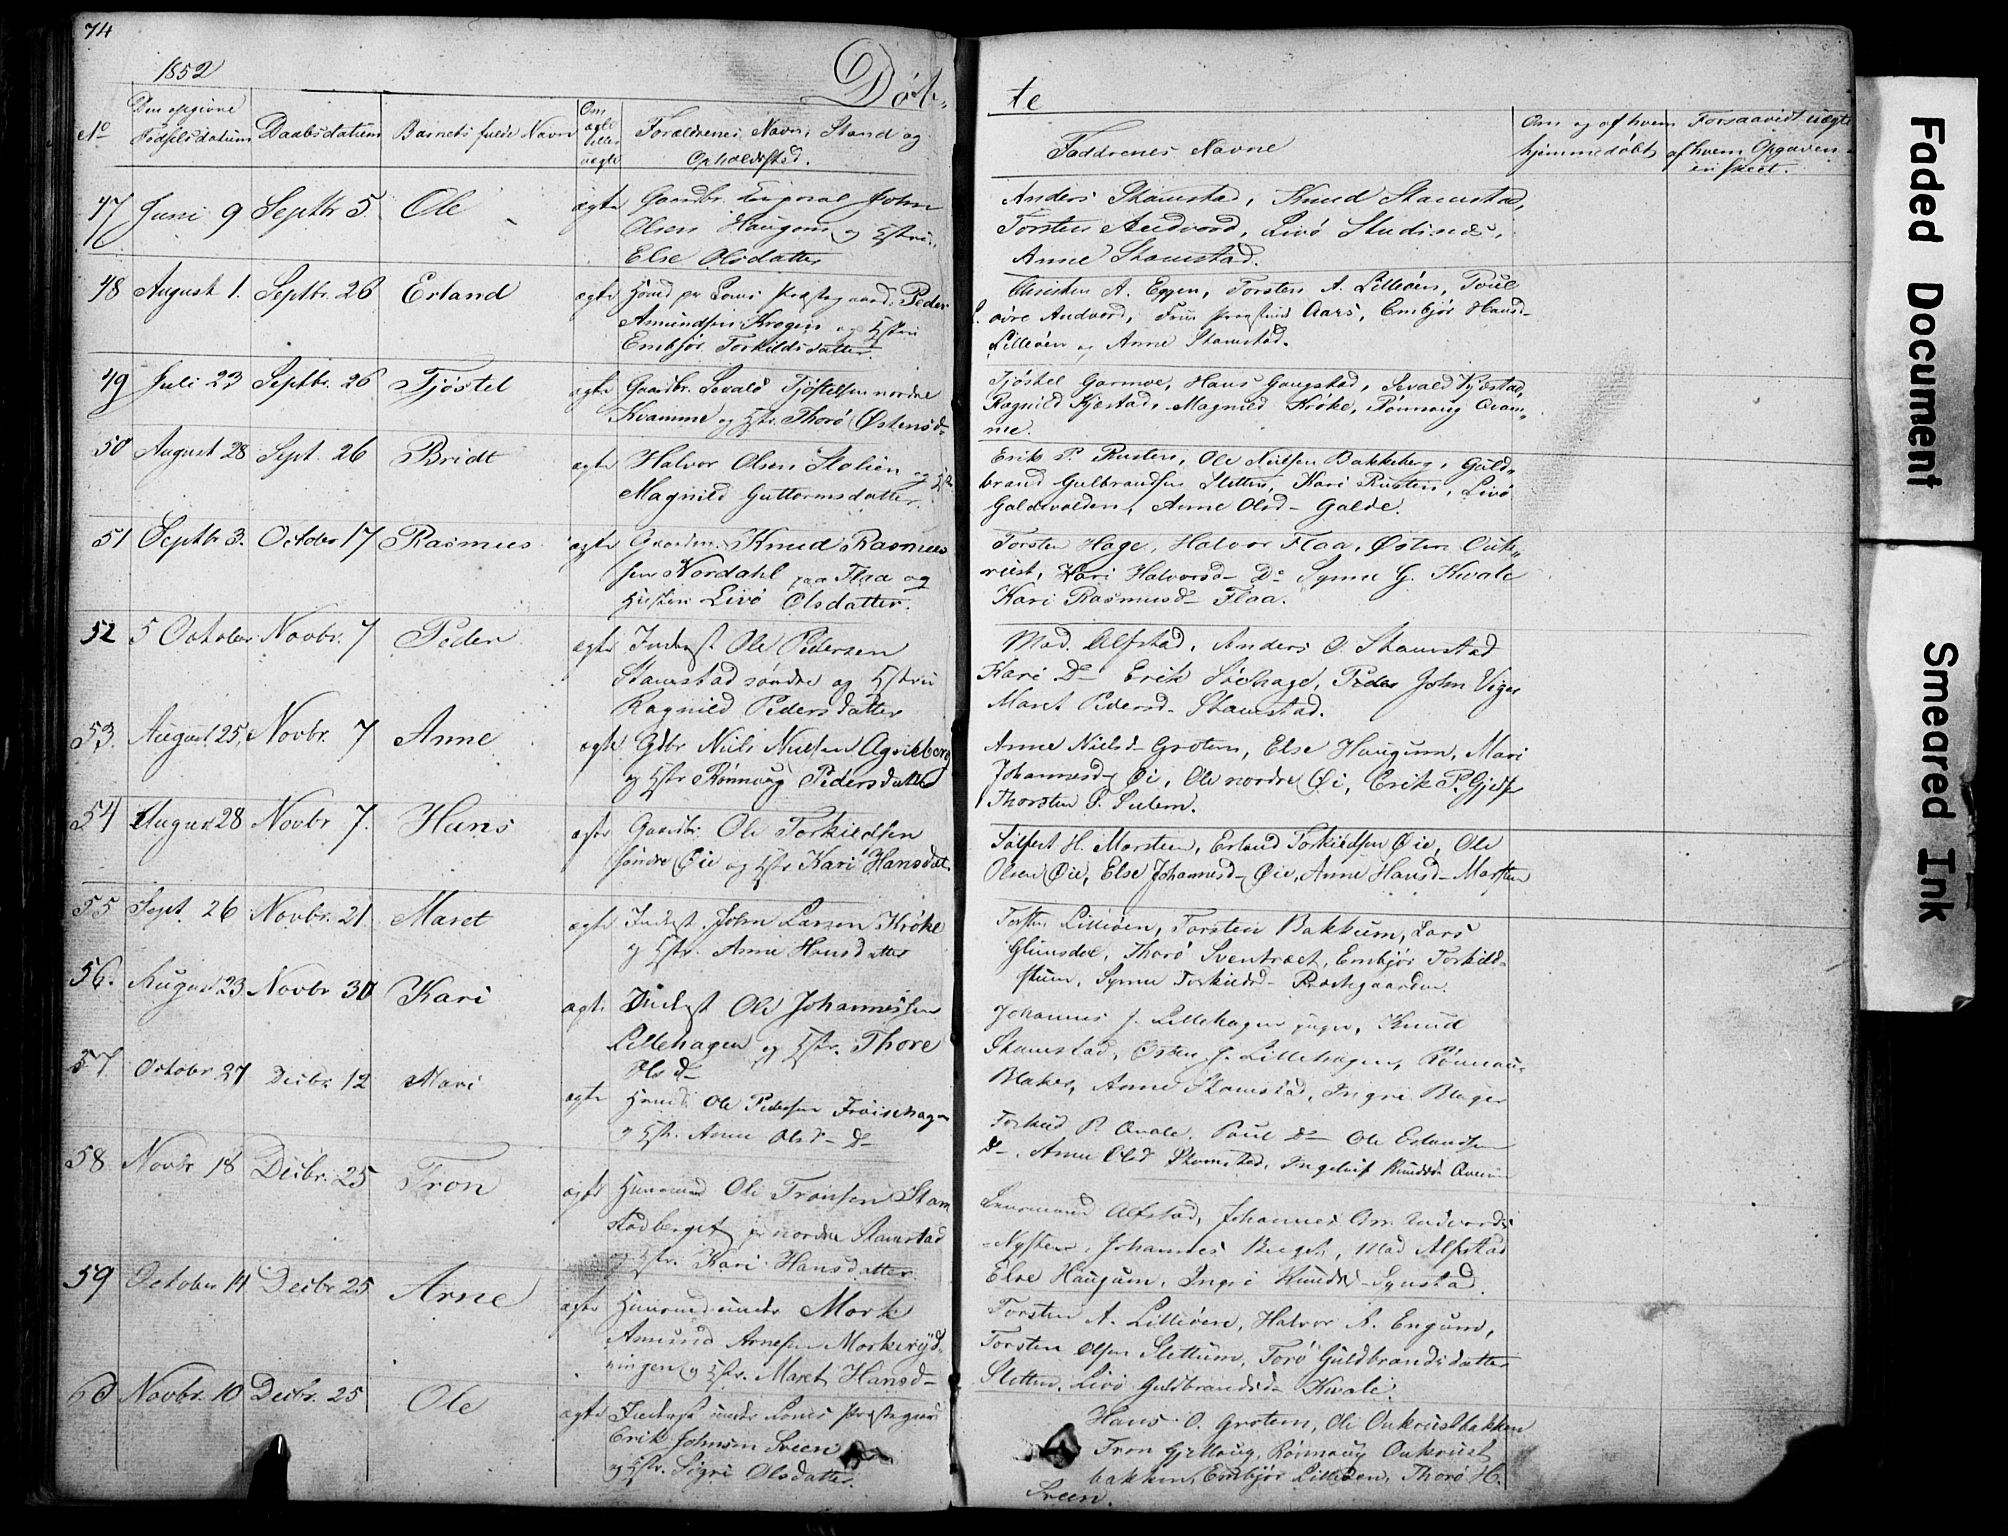 74
1852
Døb-
te
No
Den opgivne
Fødselsdatum
Daabsdatum
Barnets fulde Navn
Om
ægte
eller
uægte
Forældrenes Navn, Stand og
Opholdssted.
Faddrenes Navne
Om og af hvem
hjemmedøbt
Forsaavidt uægte
af hvem Opgaven
er skeet.
47 Juni 9 Septbr 5. Ole ægte Gaardbr. Corporal John
Olsen Haugen og Hstru
Else Olsdatter
Anders Stamstad, Knud Stamstad,
Torsten Andvord, Livø
Anne Stamstad.
48 August 1. Septbr. 26 Erland ægte Huusmd pr Loms Præstegaard Peder
Amundsen Krogen og Hstru
Embjør Torkildsdatter.
Christen A. Eggen, Torsten A. Lilleøen, Poul
øvre Andvord, Frue Aars, Embjør Hansd-
Lilleøen og Anne Stamstad.
49 Juli 23 Septbr. 26 Tjøstel ægte Gaardbr. Sevald Tjøstelsen nordre
Kvamme og Hstr. Thorø Østensd-
Tjøstel Garmoe, Hans Gangstad, Sevald Kjæstad,
Ragnild Kjæstad, Magnild Krøke, Rønnaug Qvam-
me.
50 August 28 Sept. 26 Bridt ægte Halvor Olsen Stolien og Hstr
Magnild Guttormsdatter.
Erik P. Rusten, Ole Nielsen Bakkeberg, Guld-
brand Gulbrandsen Sletten, Kari Rusten, Livø
Galdevolden, Anne Olsd- Galde.
51 Septbr 3. October 17 Rasmus ægte Gaardm. Knud Rasmus
sen Nordahl paa Flaa og
Hustru Livø Olsdatter.
Torsten Hage, Halvor Flaa, Østen Ouk-
rust, Kari Halvorsd- Do Synne G. Kvale
Kari Rasmusd- Flaa.
52 5 October Novbr. 7 Peder ægte Inderst Ole Pedersen
Stamstad søndre og Hstru
Ragnild Pedersdatter
Mad. Alfstad, Anders O. Stamstad
Kari Do Erik Søehage, Peder John Viger
Maret Pedersd- Stamstad.
53. August 25, Novbr. 7 Anne ægte Gdbr Niels Nielsen
og Hstr Rønnaug Pedersdatter
Anne Nielsd- Grotem, Else Haugum, Mari
Johannesd- Øi, Ole nordre Øi, Erik P.
Thorsten P. Sulem.
54 August 28 Novbr 7. Hans ægte Gaardbr. Ole Torkildsen
søndre Øie og Hstr Kari Hansdat.
Sølfest H. Marsteen, Erland Torkildsen Øie, Ole
Olsen Øie, Else Johannesd- Øie, Anne Hansd- Marsten
55 Sept. 26 Novbr. 21 Maret ægte Inderst John Larsen Krøke
og Hstr. Anne Hansdatter
Torsten Lilleøen, Torsten Bakkum, Lars
Glimsdal, Thorø Sventræet, Embjør Torkild-
Synne Torkildsd- Præstegaarden.
56. August 23 Novbr 30 Kari ægte Inderst Ole Johannessen
Lillehagen og Hstr. Thore
Olsd-
Johannes J. Lillehagen Knud
Stamstad, Østen J. Lillehagen, Rønnau
Blaker, Anne Stamstad, Ingri
57 Octobr 27 Decbr. 12 Mari ægte Huusmd Ole Pedersen Frøisehagen
og Hstr. Anne Olsd- Do
Torkild P. Qvale, Paul Do Ole Erlandsen
Do, Anne Olsd Stamstad, Knudsd
58 Novbr 18 Decbr. 25 Tron ægte Huusmand Ole Tronsen Stam
stadberget pr nordre Stamstad
og Hstr. Kari Hansdatter
Alfstad, Johannes Andvord
Johannes Berget, Mad Alfstad
Else Haugum, Ingri Knudsd- Synstad.
59 October 14 Decbr 25 Arne ægte Huusmd under Mork
Amund Arnesen Morkeryd-
ningen og Hstr. Maret Hansd-
Torsten A. Lilleøen, Halvor A. Engum,
Torsten Olsen Slettum, Torø Guldbrandsdatter
Sletten, Livø Guldbrandsd- Kvale.
60 Novbr. 10 Decbr. 25 Ole ægte Inderst under Loms Præstegaard
Erik Johnsen Sveen
og Hstr. Sigri Olsdatter.
Hans O. Grotem, Ole Oukrustbakken
Tron Rønnaug Oukrust
bakken, Embjør Lilleøen, Thorø H.
Sveen.
Faded Document
Smeared Ink